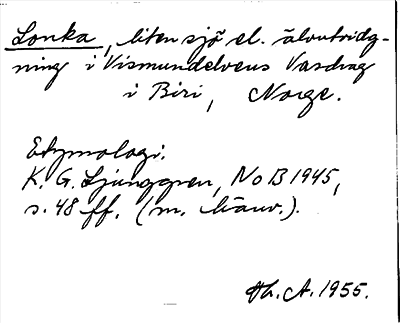 Lonka, liten sjö el. älvutvidg-
ning i Vismundelvens Vasdrag
i Biri, Norge.
Etymologi.
K. G. Ljunggren, NoB 1945,
s. 48 ff. (m. hänv.).
Th. A. 1955.